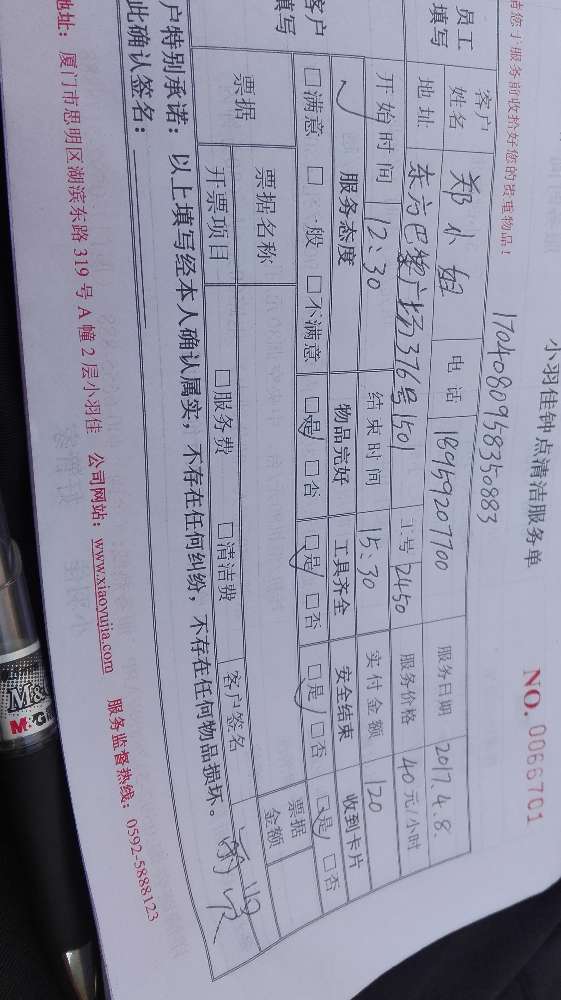 小羽佳钟点清洁服务单
NO. 0066701
17040809158350883
请您于服务前收拾好您的贵重物品!
员工填写
客户姓名 郑小姐 电话 18959207700 服务日期 2017.4.8.
地址 东方巴黎广场376号1501 工号 2450 服务价格 40元/小时
开始时间 12:30 结束时间 15:30 实付金额 120
客户填写
服务态度 物品完好 工具齐全 安全结束 收到卡片
□满意 □一般 □不满意 □是 □否 □是 □否 □是 □否 □是 □否
票据 票据名称 票据金额
开票项目 □服务费 □清洁费 客户签名
户特别承诺: 以上填写经本人确认属实, 不存在任何纠纷, 不存在任何物品损坏。
此确认签名:
地址: 厦门市思明区湖滨东路 319 号 A 幢 2 层小羽佳 公司网站: www.xiaoyujia.com 服务监督热线: 0592-5888123
M&G